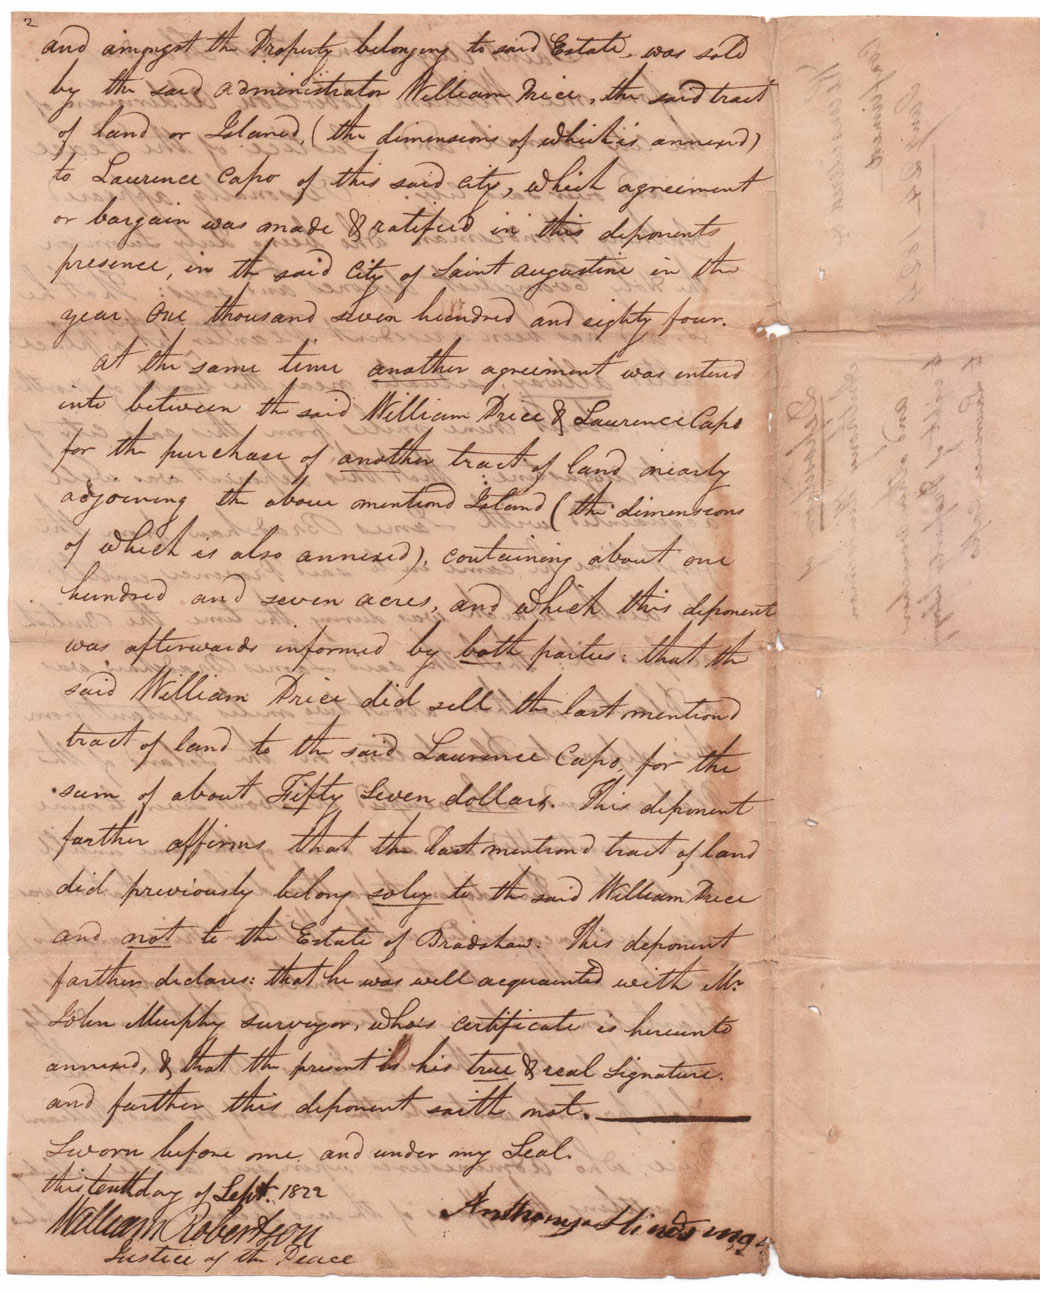 2
and amongst the Property belonging to said Estate, was sold
by the said administrator William Price, the said tract
of land or Island, (the dimensions of which is annexed)
to Laurence Capo of this said city, which agreement
or bargain was made & ratified in this deponents
presence, in the said City of Saint Augustine in the
year One thousand seven hundred and eighty four.
at the same time another agreement was entered
into between the said William Price & Laurence Capo
for the purchase of another tract of land nearly
adjoining the above mentiond Island (the dimensions
of which is also annexed), containing about one
hundred and seven acres, and which this deponent
was afterwards informed by both parties: that the
said William Price did sell the last mentiond
tract of land to the said Laurence Capo, for the
sum of about Fifty Seven dollars. This deponent
farther affirms that the last mentiond tract of land
did previously belong soley to the said William Price
and not to the Estate of Bradshaw. This deponent
farther declares: that he was well acquainted with Mr
John Murphy surveyor, who's certificate is hereunto
annexed, & that the present is his true & real signature.
and farther this deponent saith not.
Sworn before me and under my Seal.
this tenth day of Sept. 1822
William Robertson
Justice of the Peace